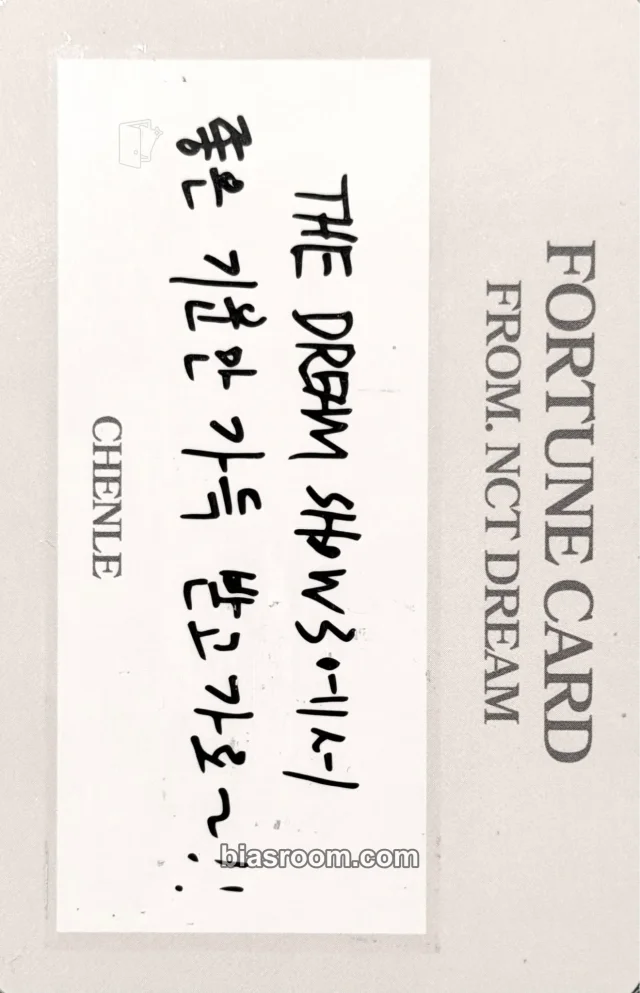 FORTUNE CARD
FROM. NCT DREAM
THE DREAM SHOW 3에서
좋은 기운만 가득 받고 가요~!!
CHENLE
biasroom.com